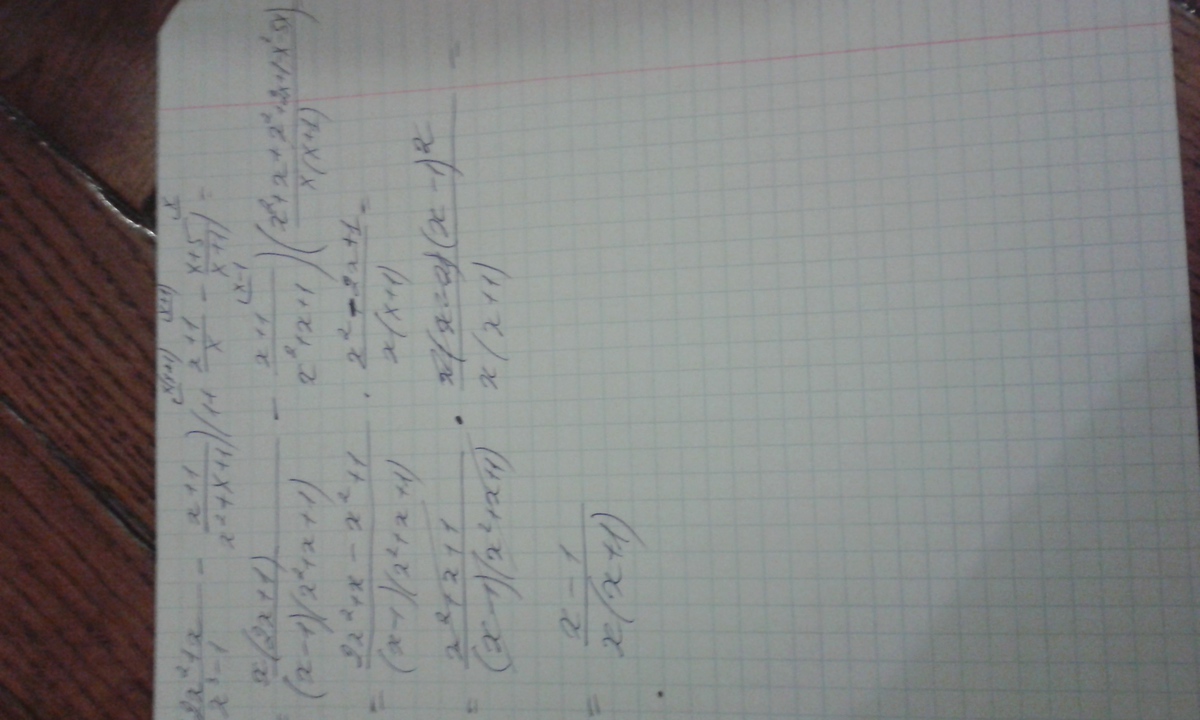 (2x²+x)/(x³-1) - (x+1)/(x²+x+1))(1+ (x+1)/x - (x+5)/(x+1)) =
= (x(2x+1))/((x-1)(x²+x+1)) - (x+1)/(x²+x+1))((x²+x+x²+2x+1-x²-5x)/(x(x+1))
= (2x²+x-x²+1)/((x-1)(x²+x+1)) · (x²-2x+1)/(x(x+1)) =
= (x²+x+1)/((x-1)(x²+x+1)) · (x-1)²/(x(x+1)) =
= (x-1)/(x(x+1))